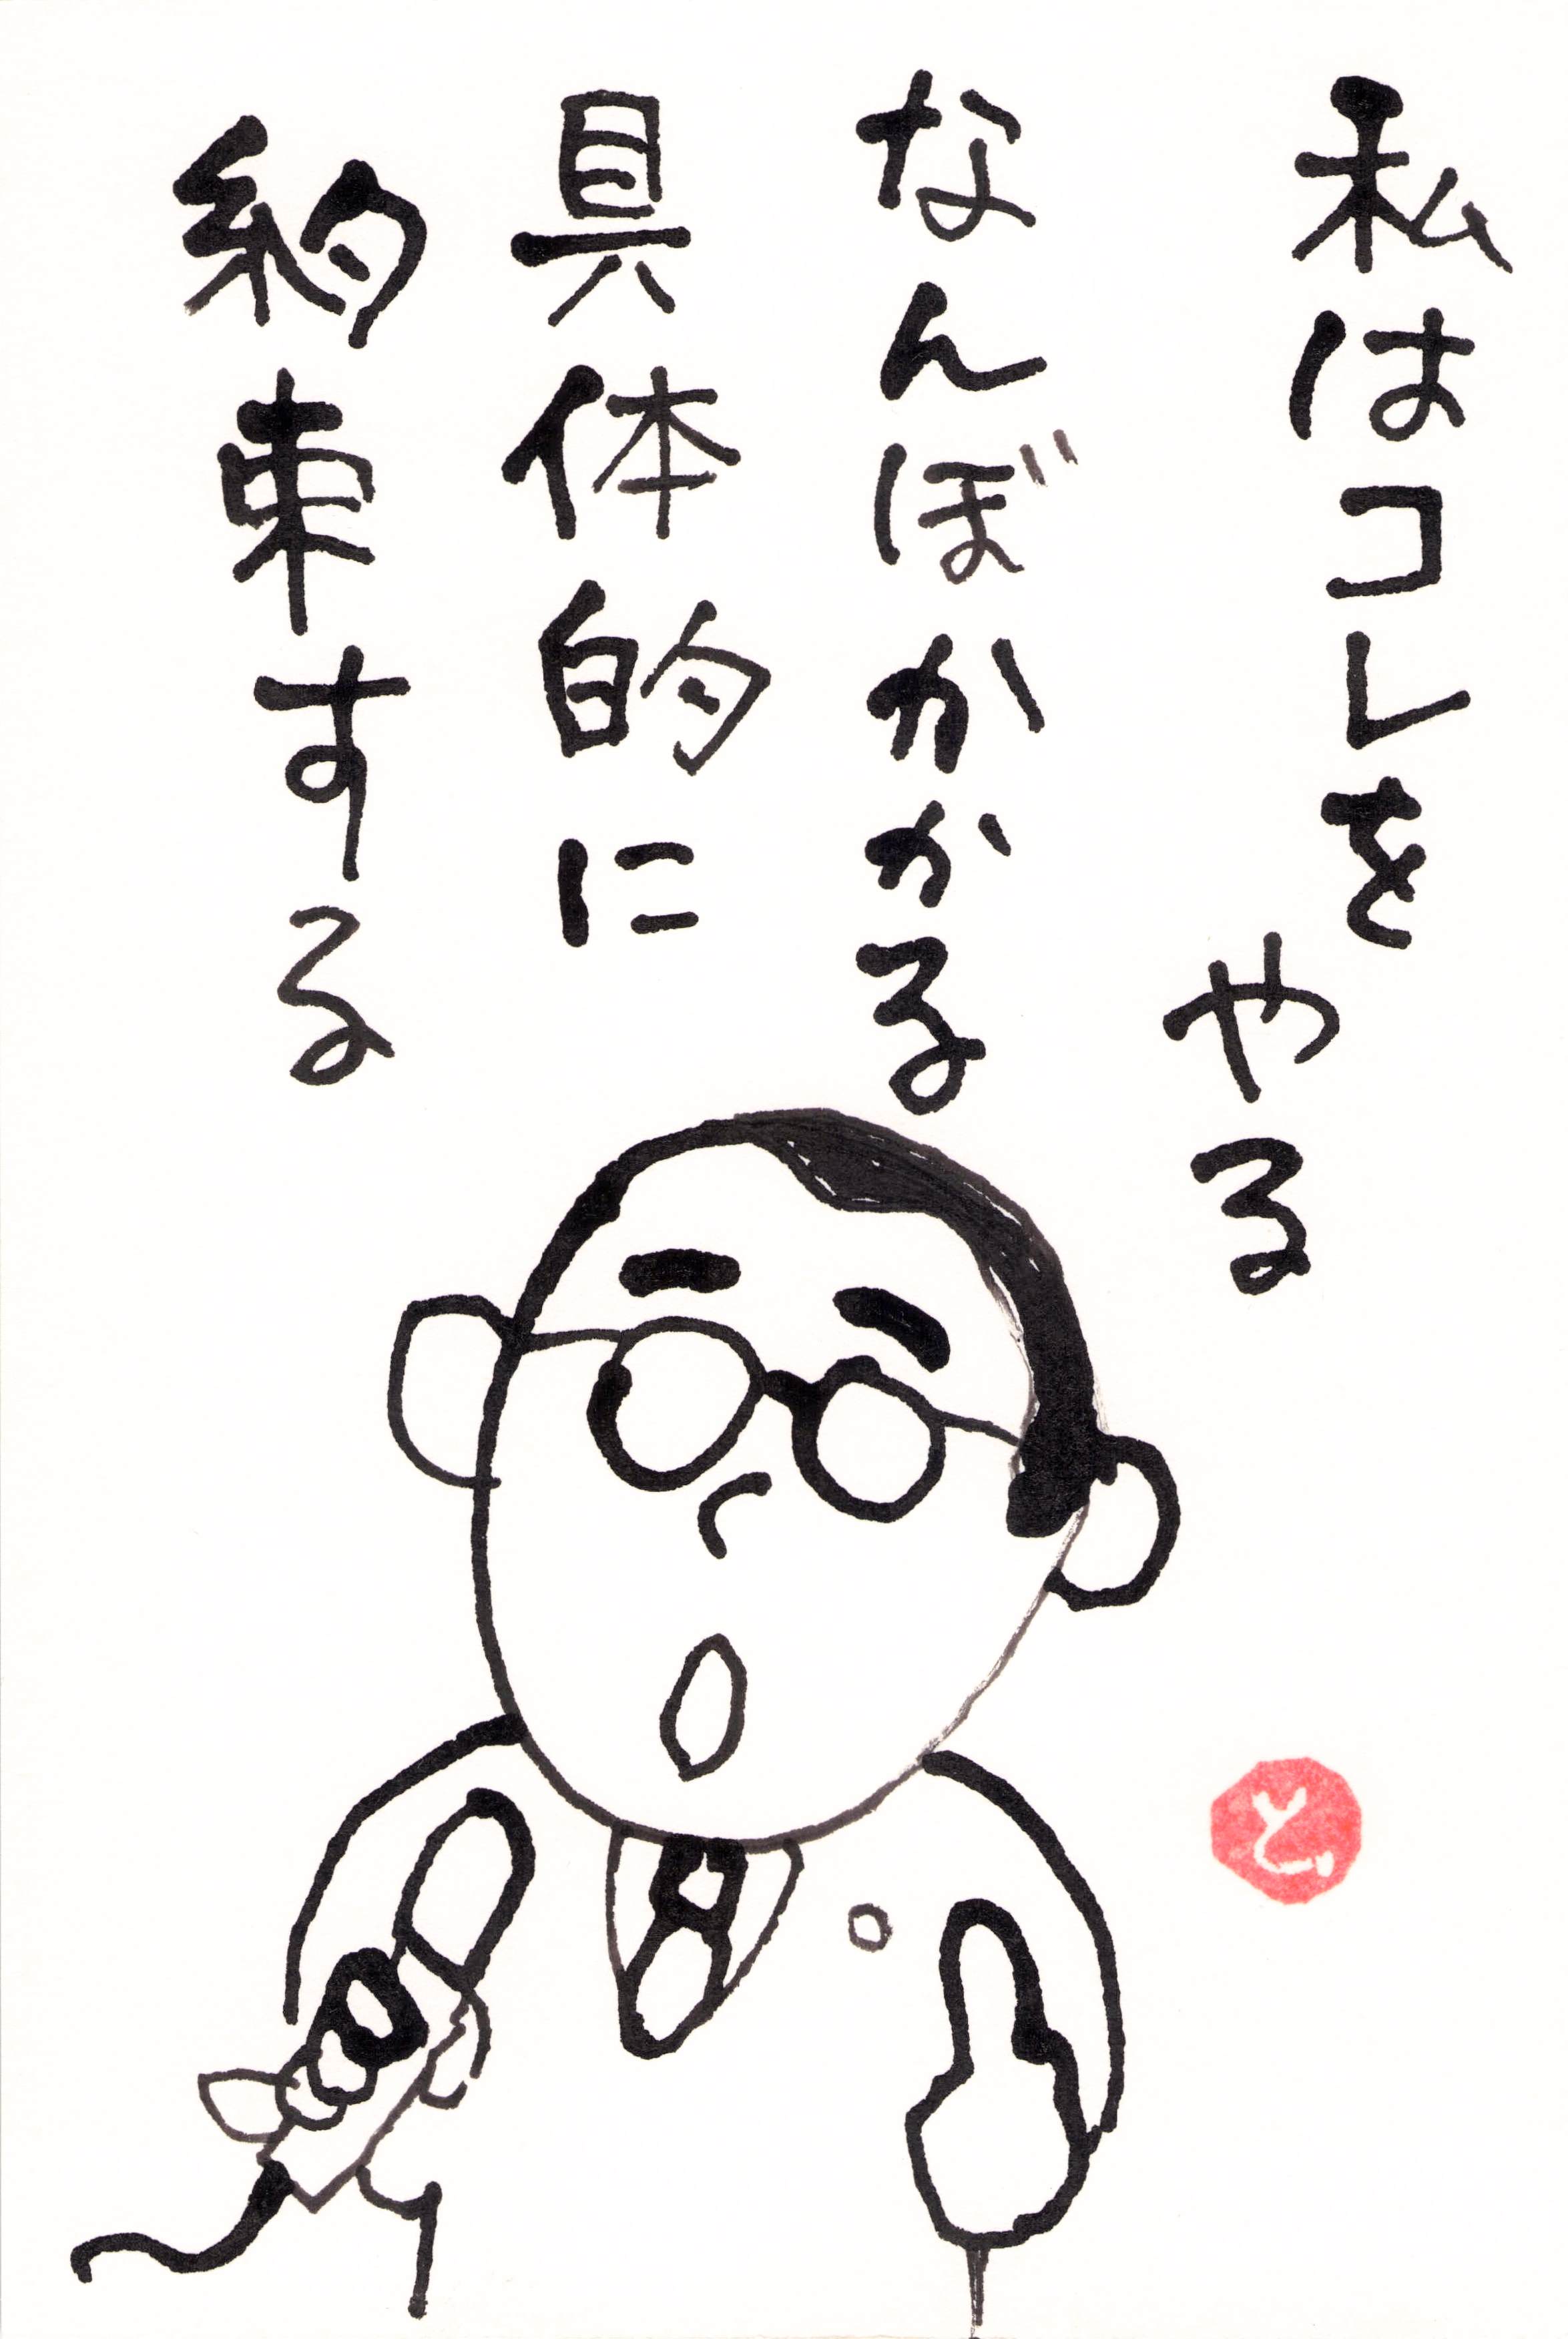 私はコレを
やる
なんぼかかる
具体的に
約束する
と